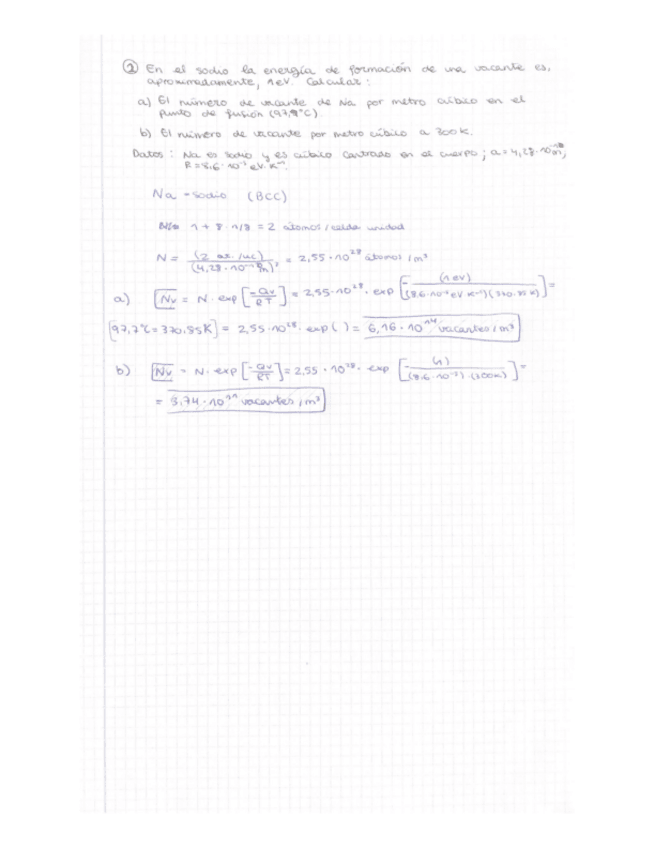 ② En el sodio la energía de formación de una vacante es,
aproximadamente, 1eV. Calcular:
a) El número de vacante de Na por metro cúbico en el
punto de fusión (97,7°C)
b) El número de vacante por metro cúbico a 300K.
Datos: Na es sodio y es cúbico centrado en el cuerpo; a = 4,28·10⁻¹⁰m;
R = 8,6·10⁻⁵ eV·K⁻¹.
Na - sodio (BCC)
1 + 8·1/8 = 2 átomos/celda unidad
N = (2 at./uc) / (4,28·10⁻¹⁰m)³ = 2,55·10²⁸ átomos/m³
a) Nv = N·exp[-Qv/RT] = 2,55·10²⁸·exp[-(1eV)/((8,6·10⁻⁵eV K⁻¹)(370,85K))] =
[97,7°C = 370,85K] = 2,55·10²⁸·exp( ) = 6,16·10¹⁴ vacantes/m³
b) Nv = N·exp[-Qv/RT] = 2,55·10²⁸·exp[-(1)/((8,6·10⁻⁵)·(300K))] =
= 3,74·10¹¹ vacantes/m³